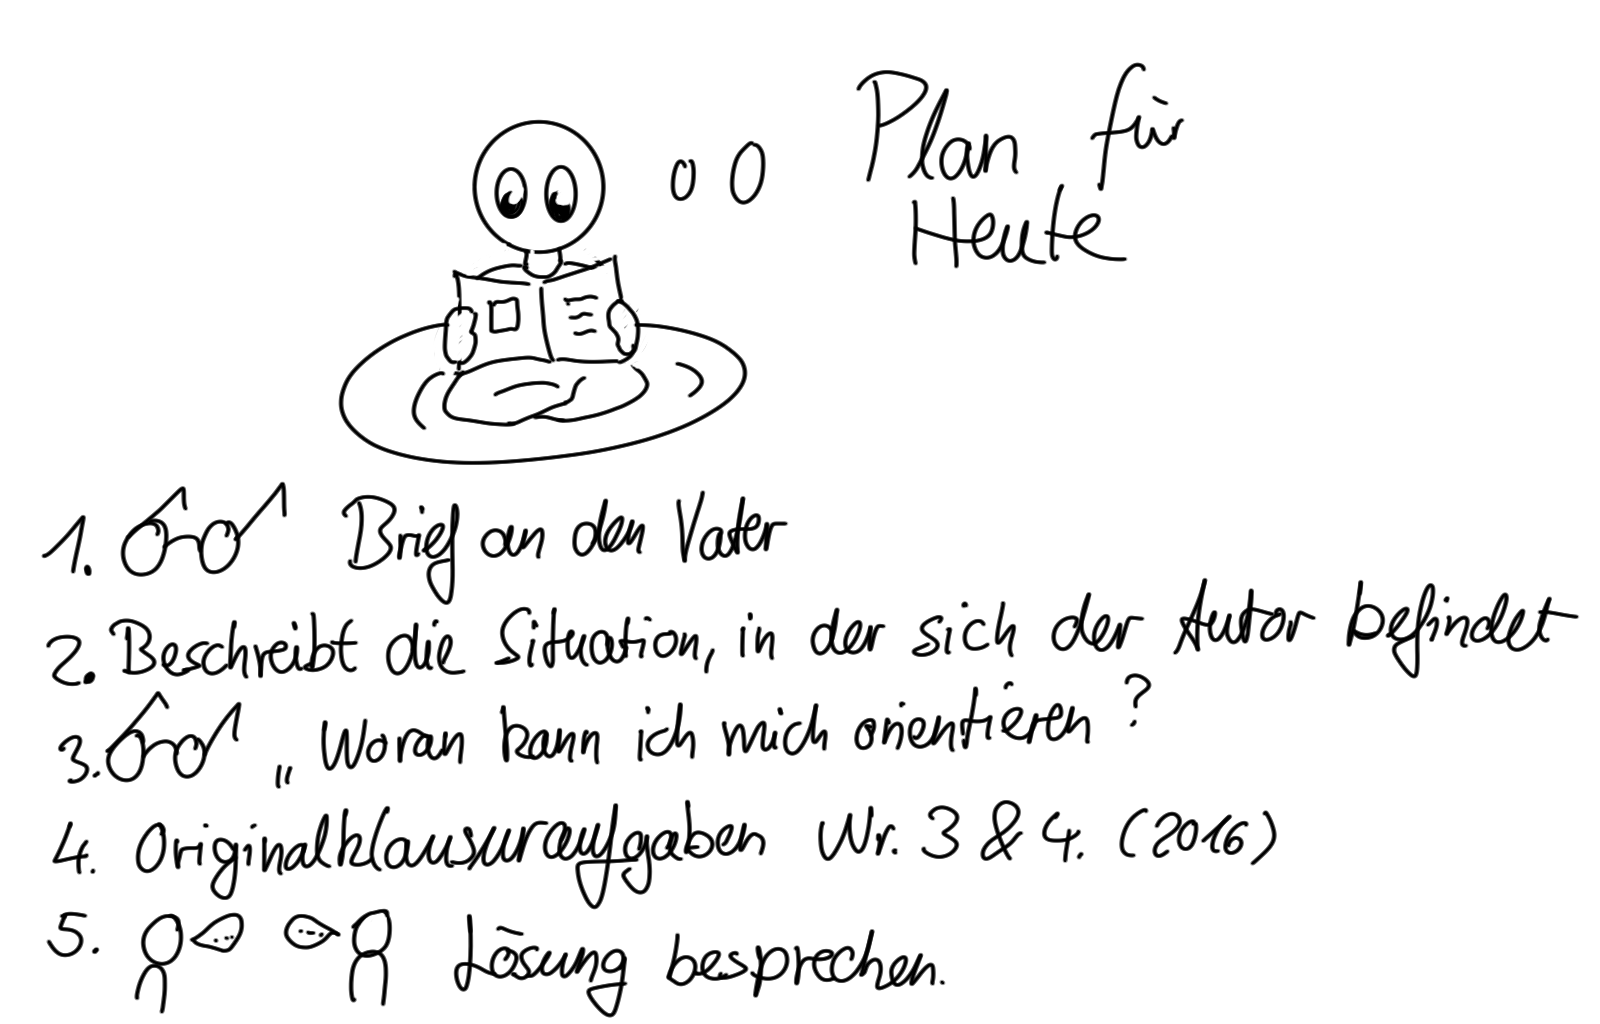 Plan für
Heute
1. Brief an den Vater
2. Beschreibt die Situation, in der sich der Autor befindet
3. „Woran kann ich mich orientieren?
4. Originalklausuraufgaben Nr. 3 & 4. (2016)
5. Lösung besprechen.